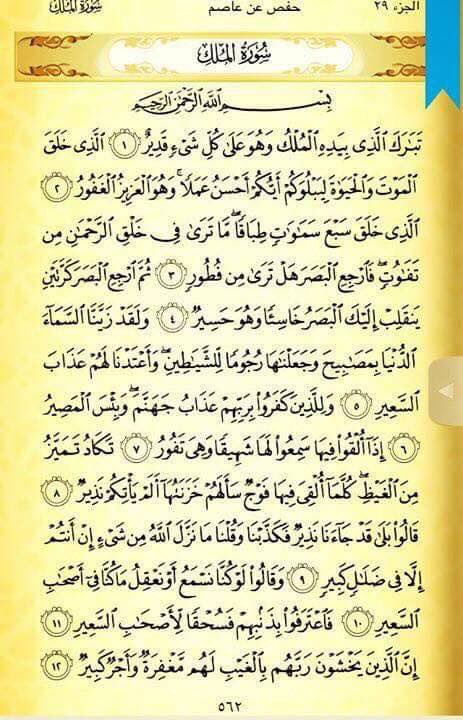 الجزء ٢٩ حفص عن عاصم سُورَةُ المُلْكِ
سُورَةُ المُلْكِ
بِسْمِ اللَّهِ الرَّحْمَٰنِ الرَّحِيمِ
تَبَٰرَكَ ٱلَّذِي بِيَدِهِ ٱلْمُلْكُ وَهُوَ عَلَىٰ كُلِّ شَيْءٍ قَدِيرٌ ١ ٱلَّذِي خَلَقَ
ٱلْمَوْتَ وَٱلْحَيَوٰةَ لِيَبْلُوَكُمْ أَيُّكُمْ أَحْسَنُ عَمَلًا ۚ وَهُوَ ٱلْعَزِيزُ ٱلْغَفُورُ ٢
ٱلَّذِي خَلَقَ سَبْعَ سَمَٰوَٰتٍ طِبَاقًا ۖ مَّا تَرَىٰ فِي خَلْقِ ٱلرَّحْمَٰنِ مِن
تَفَٰوُتٍ ۖ فَٱرْجِعِ ٱلْبَصَرَ هَلْ تَرَىٰ مِن فُطُورٍ ٣ ثُمَّ ٱرْجِعِ ٱلْبَصَرَ كَرَّتَيْنِ
يَنقَلِبْ إِلَيْكَ ٱلْبَصَرُ خَاسِئًا وَهُوَ حَسِيرٌ ٤ وَلَقَدْ زَيَّنَّا ٱلسَّمَآءَ
ٱلدُّنْيَا بِمَصَٰبِيحَ وَجَعَلْنَٰهَا رُجُومًا لِّلشَّيَٰطِينِ ۖ وَأَعْتَدْنَا لَهُمْ عَذَابَ
ٱلسَّعِيرِ ٥ وَلِلَّذِينَ كَفَرُوا۟ بِرَبِّهِمْ عَذَابُ جَهَنَّمَ ۖ وَبِئْسَ ٱلْمَصِيرُ
٦ إِذَآ أُلْقُوا۟ فِيهَا سَمِعُوا۟ لَهَا شَهِيقًا وَهِيَ تَفُورُ ٧ تَكَادُ تَمَيَّزُ
مِنَ ٱلْغَيْظِ ۖ كُلَّمَآ أُلْقِيَ فِيهَا فَوْجٌ سَأَلَهُمْ خَزَنَتُهَآ أَلَمْ يَأْتِكُمْ نَذِيرٌ ٨
قَالُوا۟ بَلَىٰ قَدْ جَآءَنَا نَذِيرٌ فَكَذَّبْنَا وَقُلْنَا مَا نَزَّلَ ٱللَّهُ مِن شَيْءٍ إِنْ أَنتُمْ
إِلَّا فِي ضَلَٰلٍ كَبِيرٍ ٩ وَقَالُوا۟ لَوْ كُنَّا نَسْمَعُ أَوْ نَعْقِلُ مَا كُنَّا فِيٓ أَصْحَٰبِ
ٱلسَّعِيرِ ١٠ فَٱعْتَرَفُوا۟ بِذَنۢبِهِمْ فَسُحْقًا لِّأَصْحَٰبِ ٱلسَّعِيرِ ١١
إِنَّ ٱلَّذِينَ يَخْشَوْنَ رَبَّهُم بِٱلْغَيْبِ لَهُم مَّغْفِرَةٌ وَأَجْرٌ كَبِيرٌ ١٢
٥٦٢